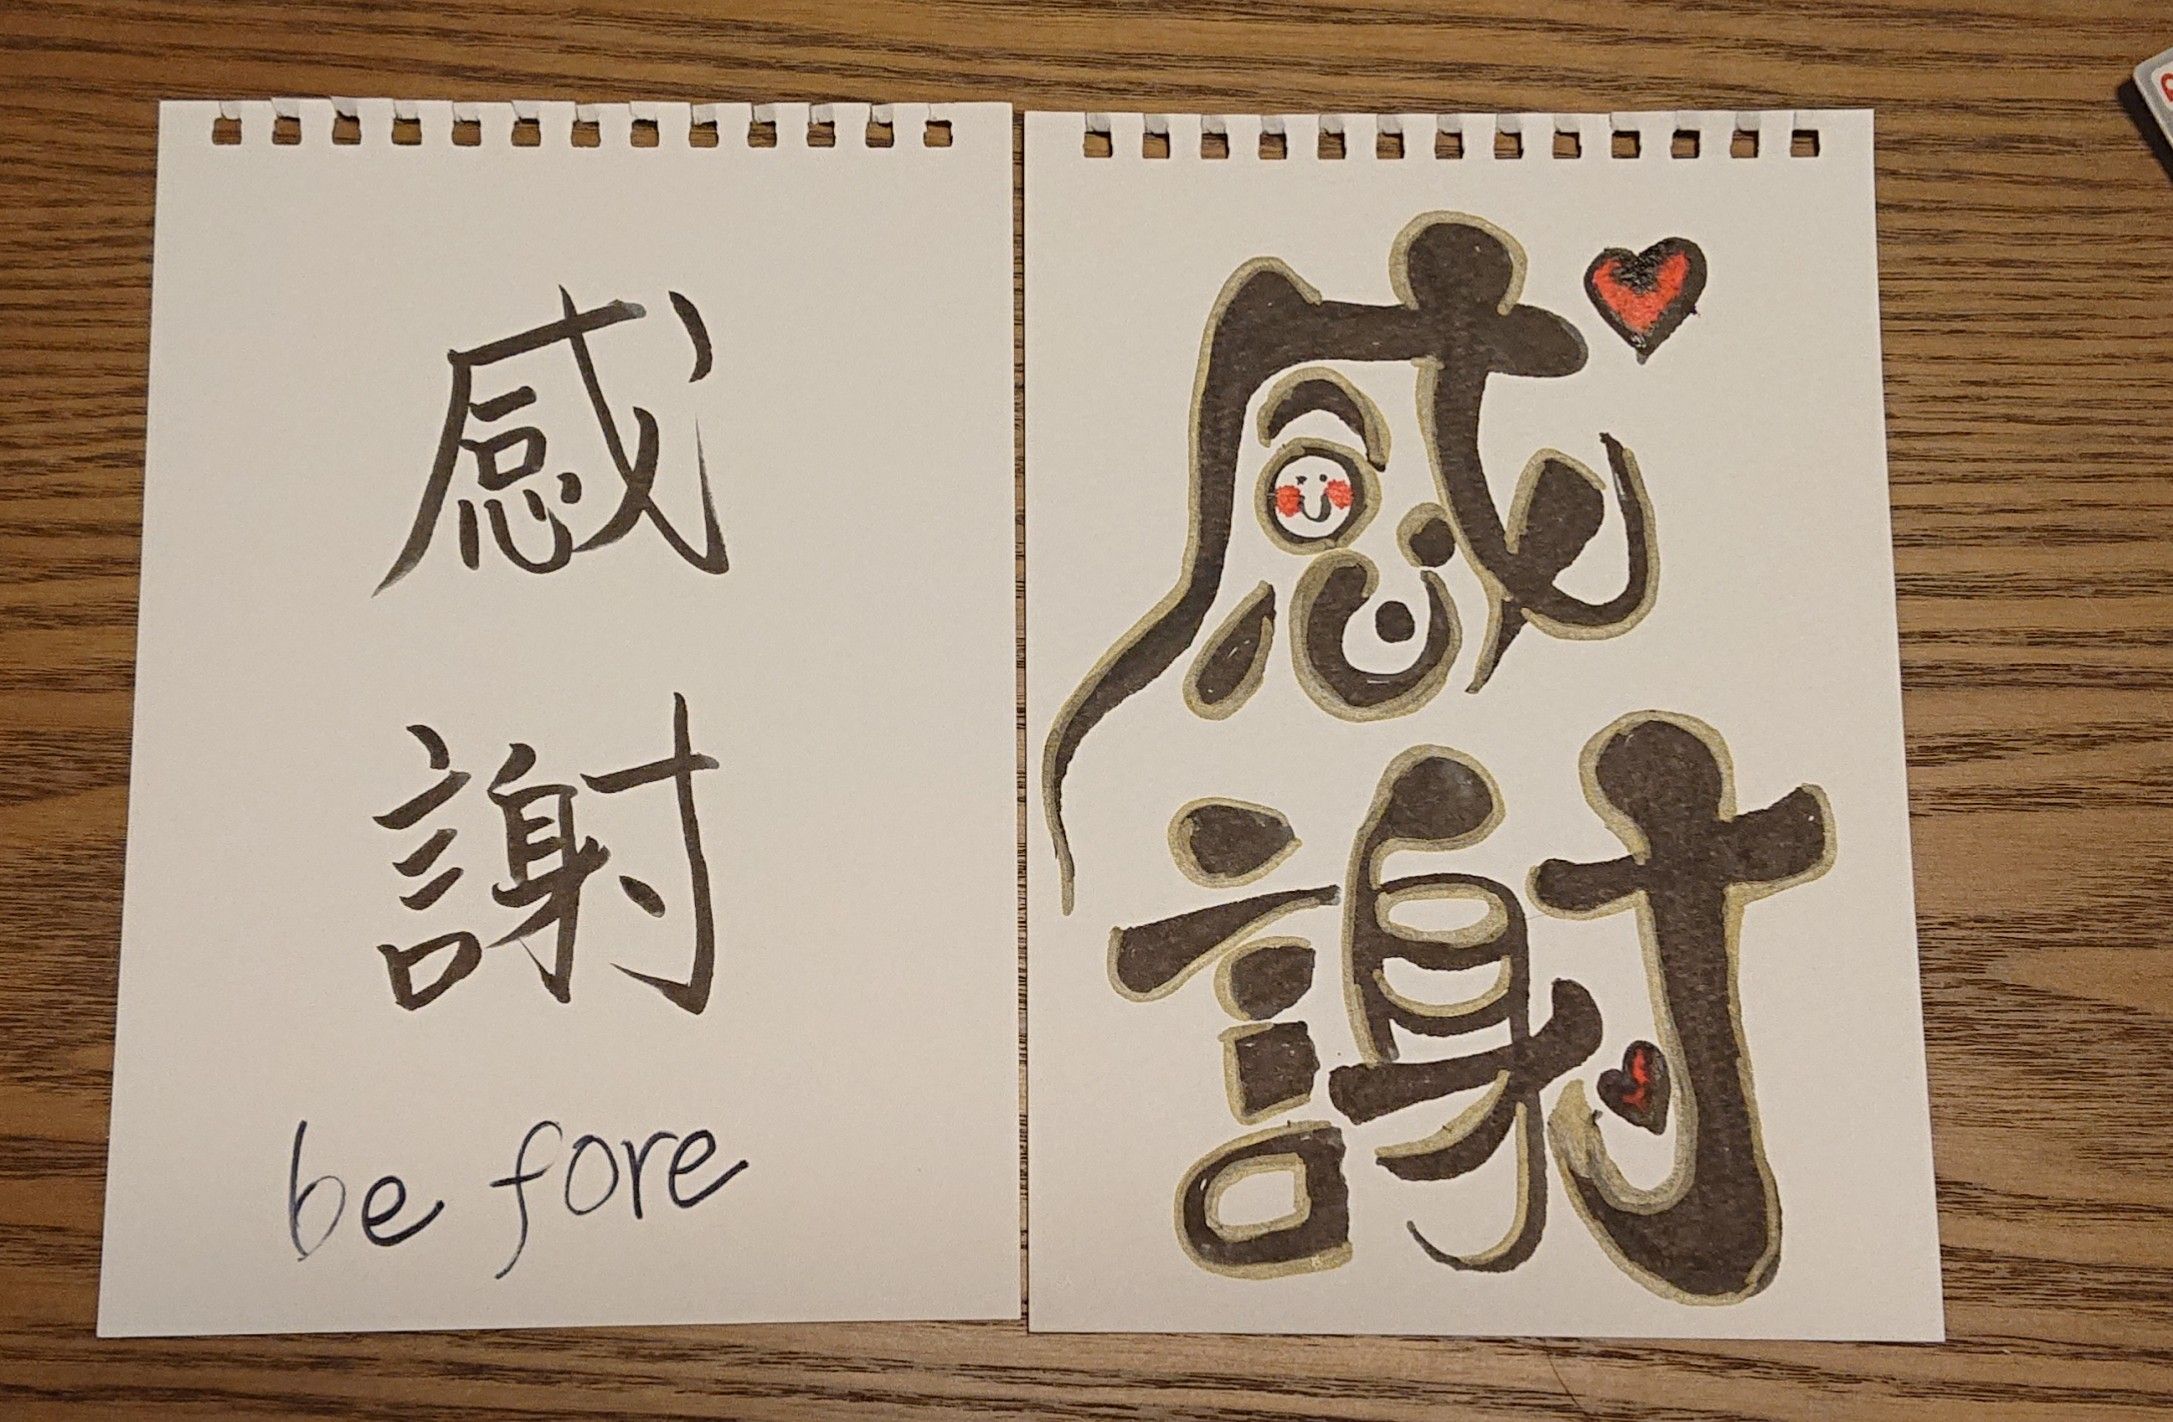 感
謝
be fore
感
謝